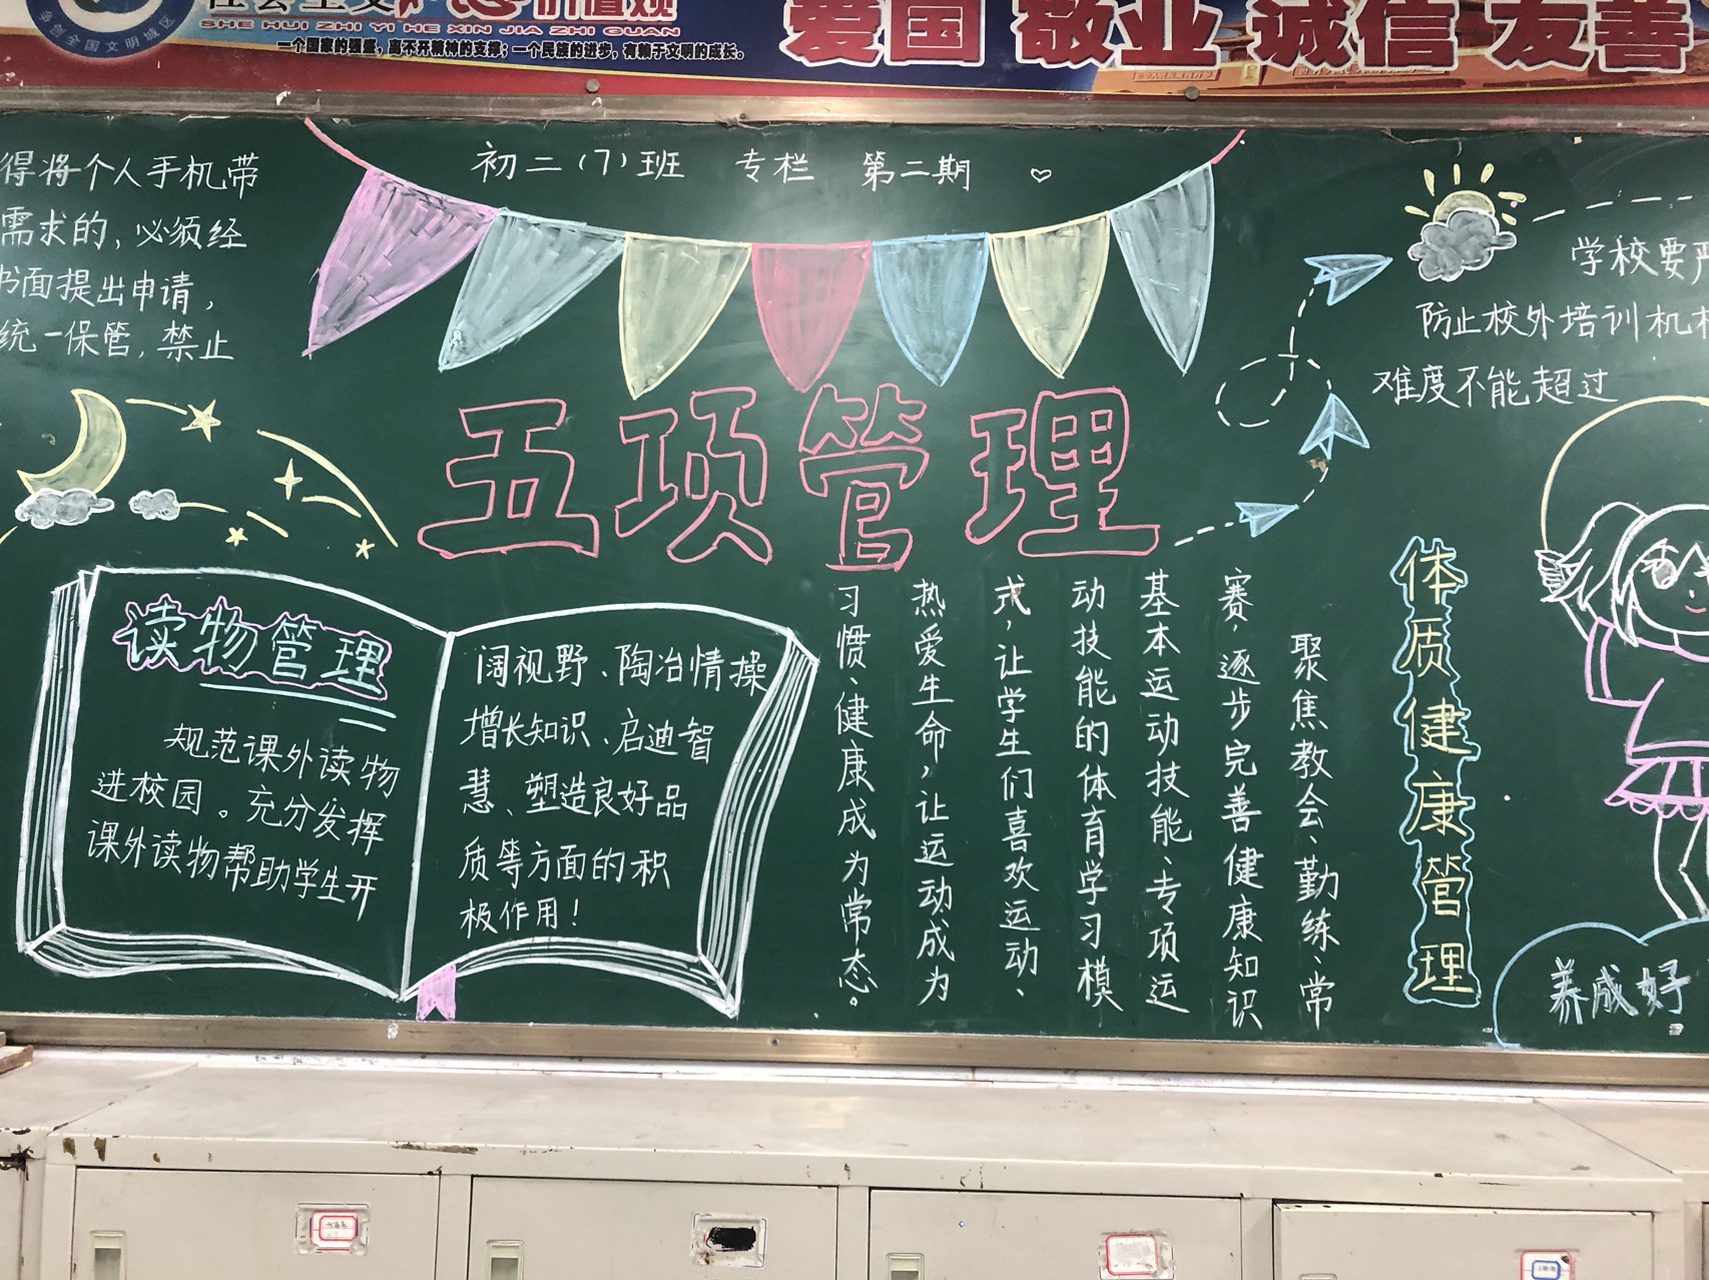 争创全国文明城区
SHE HUI ZHI YI HE XIN JIA ZHI GUAN
一个国家的强盛，离不开精神的支撑；一个民族的进步，有赖于文明的成长。
爱国 敬业 诚信 友善
初二（7）班 专栏 第二期
得将个人手机带
需求的，必须经
书面提出申请，
统一保管，禁止
学校要严
防止校外培训机构
难度不能超过
五项管理
读物管理
规范课外读物
进校园。充分发挥
课外读物帮助学生开
阔视野、陶冶情操
增长知识、启迪智
慧、塑造良好品
质等方面的积
极作用！
体质健康管理
聚焦教会、勤练、常
赛，逐步完善健康知识
基本运动技能、专项运
动技能的体育学习模
式，让学生们喜欢运动、
热爱生命，让运动成为
习惯、健康成为常态。
养成好